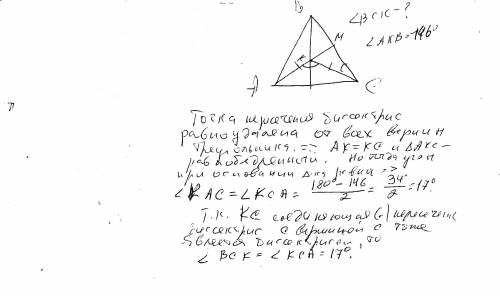 B
∠BCK-?
M
∠AKB=146°
K
A
C
Точка пересечения биссектрис
равноудалена от всех вершин
треугольника. => AK=KC и ΔAKC-
равнобедренный. Но тогда угол
при основании
∠KAC=∠KCA= 180°-146/2 = 34°/2 =17°.
Т.к. KC соединяющая пересечение
биссектрис с вершиной C тоже
является биссектрисой, то
∠BCK=∠KCA=17°.